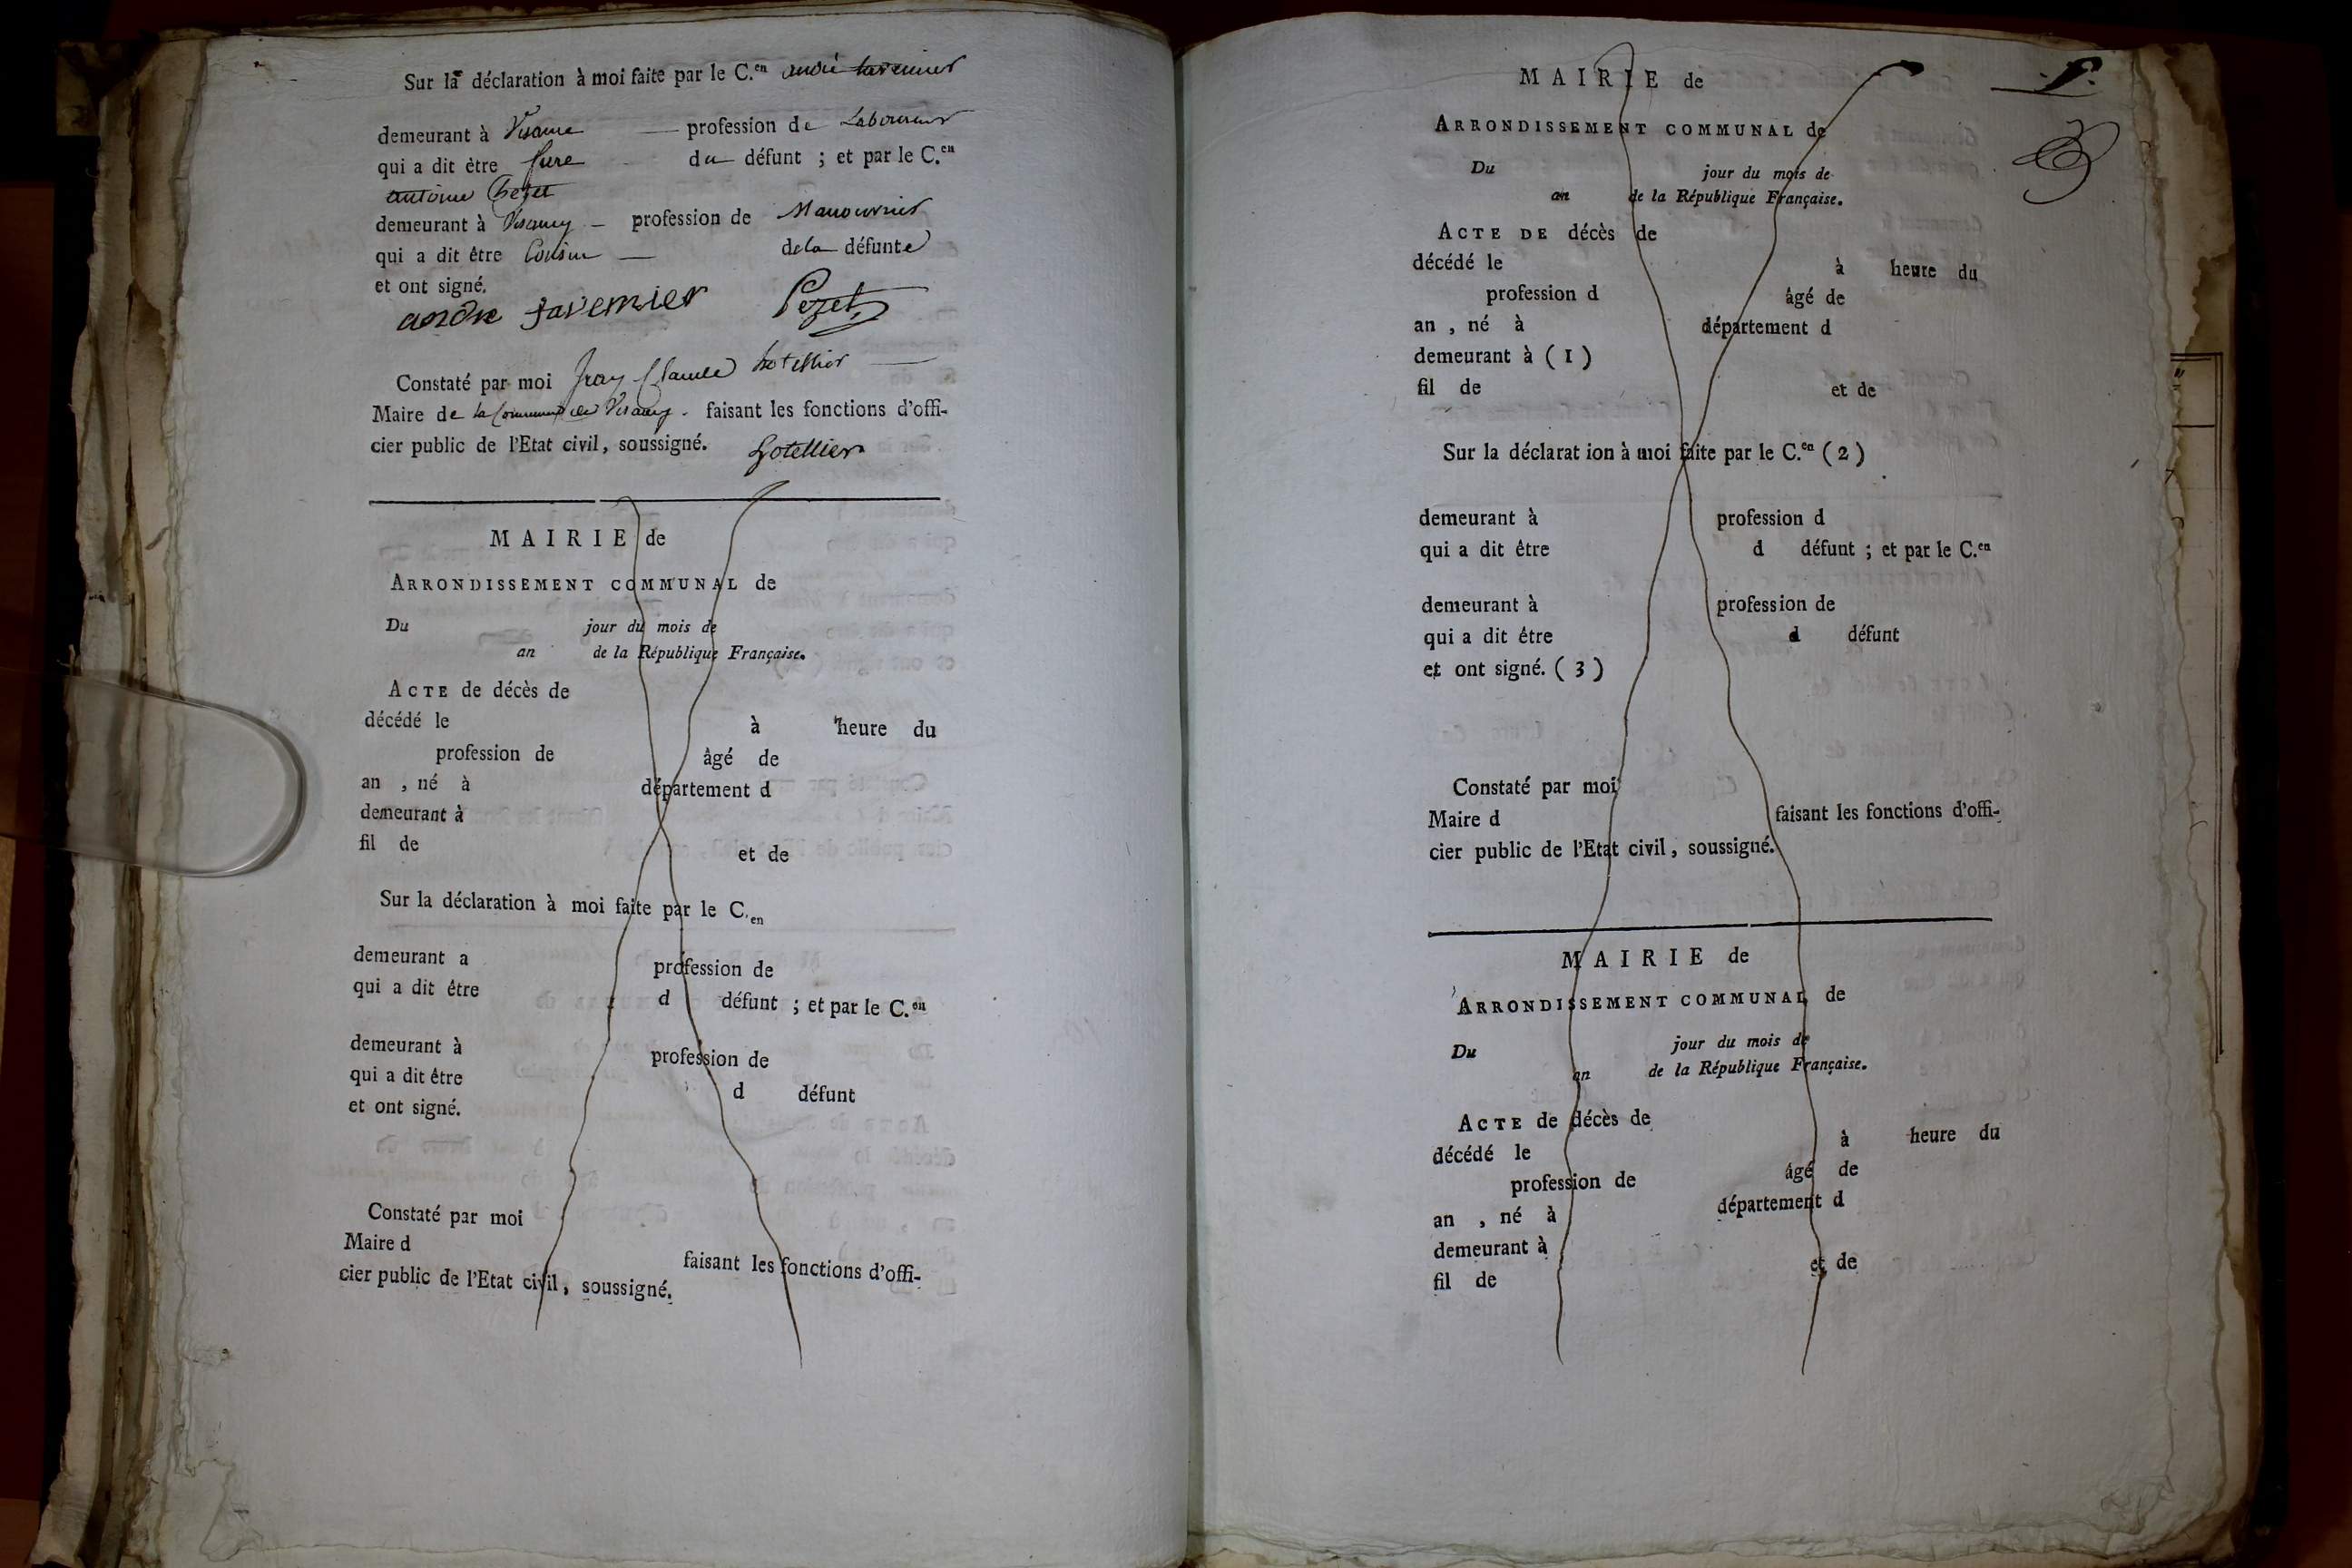 Sur la déclaration à moi faite par le C.en andré tavernier
demeurant à profession de Laboureur
qui a dit être du défunt ; et par le C.en
antoine Pezet
demeurant à profession de Manouvrier
qui a dit être Cousin dela défunte
et ont signé.
andre tavernier Pezet
Constaté par moi Claude Lotellier
Maire de la Commune de faisant les fonctions d'offi-
cier public de l'Etat civil, soussigné. Lotellier
MAIRIE de
ARRONDISSEMENT COMMUNAL de
Du jour du mois de
an de la République Française.
ACTE de décès de
décédé le à heure du
profession de âgé de
an , né à département d
demeurant à
fil de et de
Sur la déclaration à moi faite par le C.en
demeurant a profession de
qui a dit être d défunt ; et par le C.en
demeurant à profession de
qui a dit être d défunt
et ont signé.
Constaté par moi
Maire d faisant les fonctions d'offi-
cier public de l'Etat civil, soussigné.
MAIRIE de
ARRONDISSEMENT COMMUNAL de
Du jour du mois de
an de la République Française.
ACTE DE décès de
décédé le à heure du
profession d âgé de
an , né à département d
demeurant à (1)
fil de et de
Sur la déclarat ion à moi faite par le C.en (2)
demeurant à profession d
qui a dit être d défunt ; et par le C.en
demeurant à profession de
qui a dit être d défunt
et ont signé. (3)
Constaté par moi
Maire d faisant les fonctions d'offi-
cier public de l'Etat civil, soussigné.
MAIRIE de
ARRONDISSEMENT COMMUNAL de
Du jour du mois de
an de la République Française.
ACTE de décès de
décédé le à heure du
profession de âgé de
an , né à département d
demeurant à
fil de et de